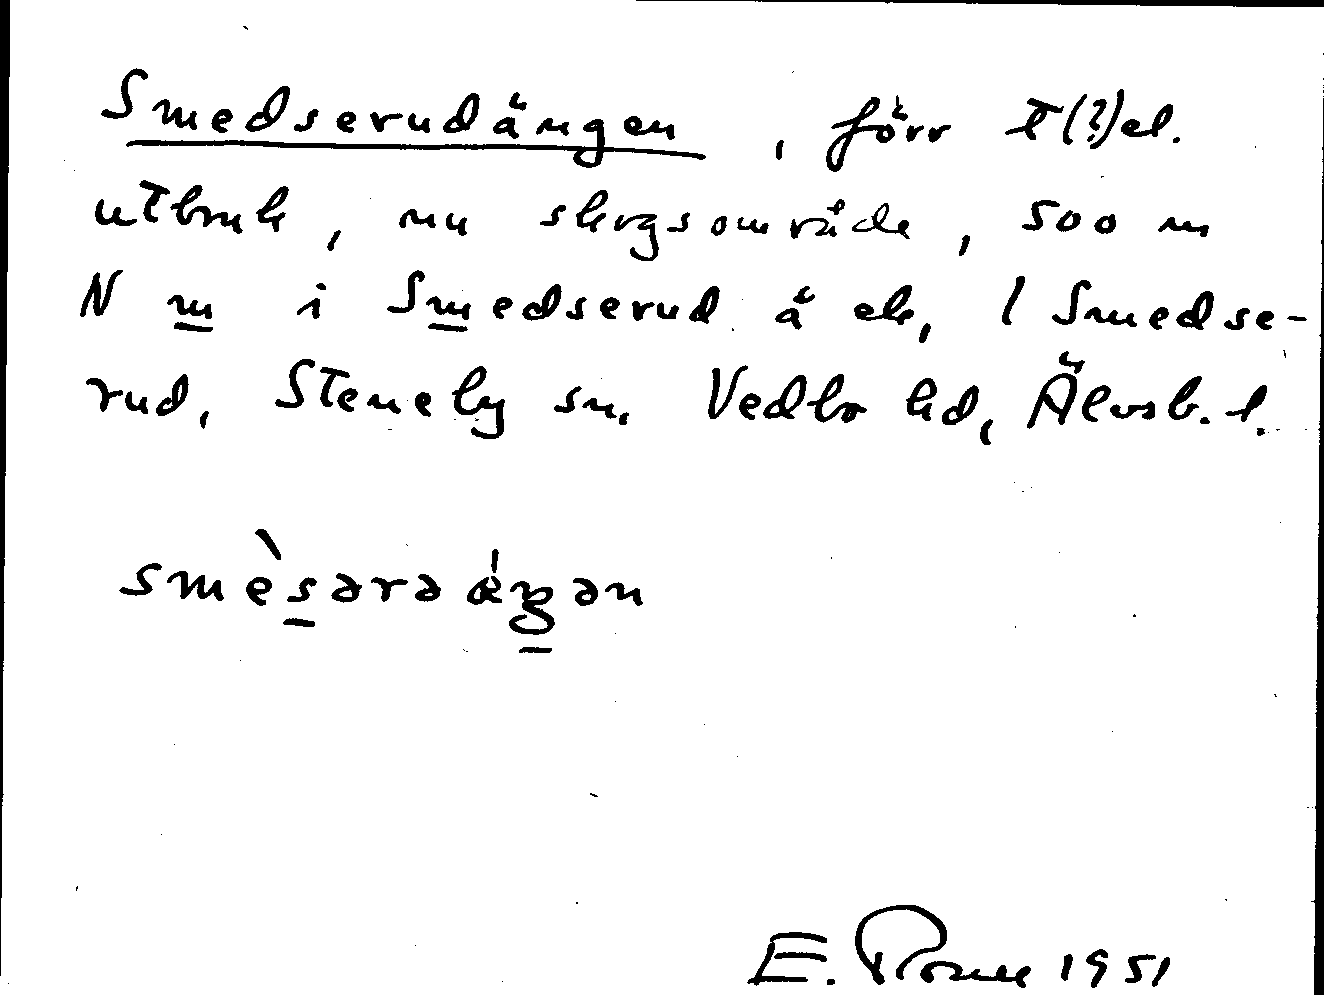 Smedserudängen, förr t(?)el.
utbruk, nu skogsområde, 500 m
N m i Smedserud å ek, 1 Smedse-
rud, Steneby sn, Vedbo hd, Älvsb. l.
smèsərə ǽŋən
E. 1951